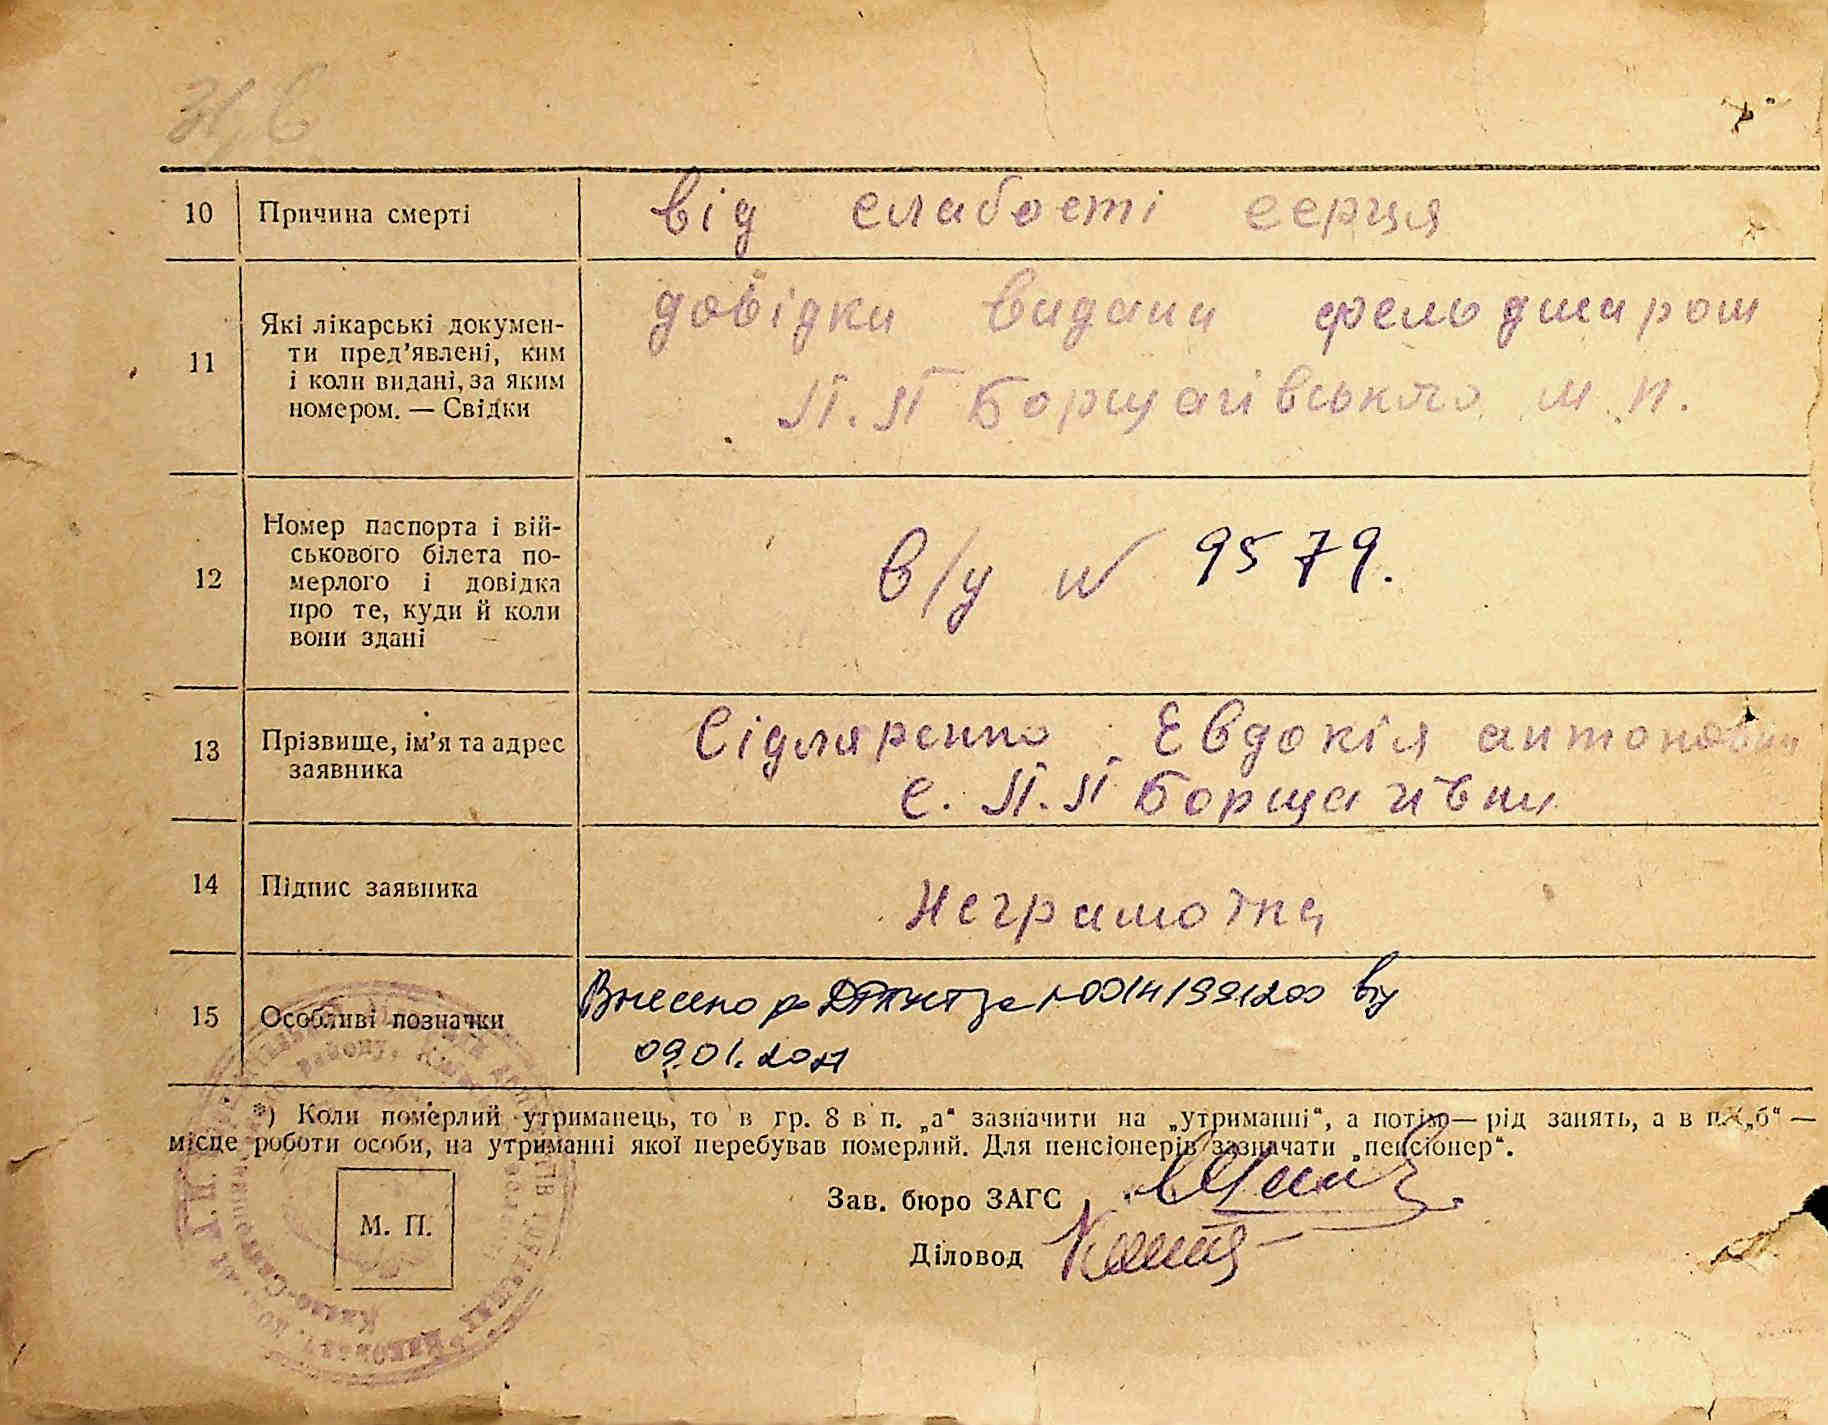 10 Причина смерті від слабості серця
Які лікарські докумен-
ти пред’явлені, ким
11 і коли видані, за яким
номером. — Свідки
довідка видана фельдшаром
П.П Борщагівського м.п.
Номер паспорта і вій-
ськового білета по-
12 мерлого і довідка
про те, куди й коли
вони здані
в/у № 9579.
13 Прізвище, ім’я та адрес
заявника
Сідляренко Евдокія антоновна
с. П.П Борщагівка
14 Підпис заявника Неграмотна
15 Особливі позначки
Внесено до за 00141991200 від
09.01.2021
*) Коли померлий утриманець, то в гр. 8 в п. „а“ зазначити на „утриманні“, а потім— рід занять, а в п. „б“ —
місце роботи особи, на утриманні якої перебував померлий. Для пенсіонерів зазначати „пенсіонер“.
Зав. бюро ЗАГС
М. П.
Діловод